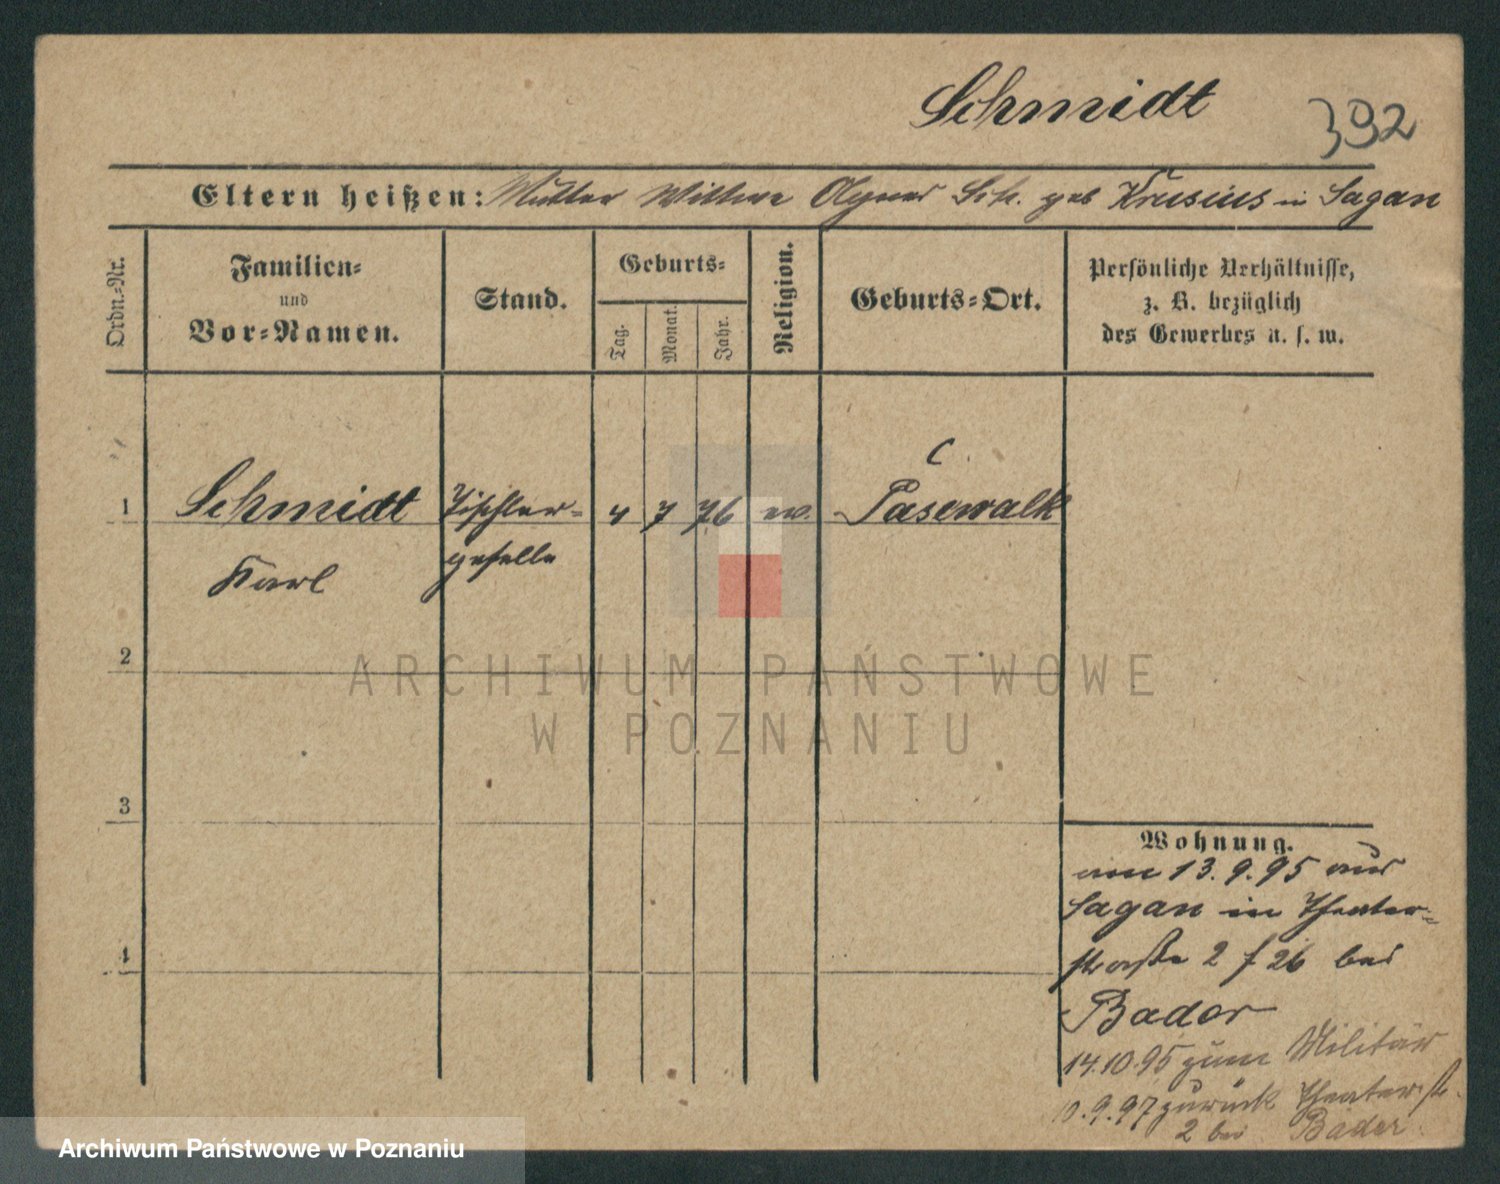 Schmidt
392
Eltern heißen: Mutter Wittwe Agnes Sch. geb Krusius in Sagan
Ordn.-Nr.
Familien-
und
Vor-Namen.
Stand.
Geburts-
Tag.
Monat.
Jahr.
Religion.
Geburts-Ort.
Persönliche Verhältnisse,
z. B. bezüglich
des Gewerbes u. s. w.
1
Schmidt
Karl
Tischler-
geselle
4
7
76
ev.
Pasewalk
2
3
4
Wohnung.
am 13.9.95 aus
Sagan in Theater-
straße 2 f 26 bei
Bader
14.10.95 zum Militär
10.9.97 zurück Theaterstr.
2 bei Bader
ARCHIWUM PAŃSTWOWE
W POZNANIU
Archiwum Państwowe w Poznaniu